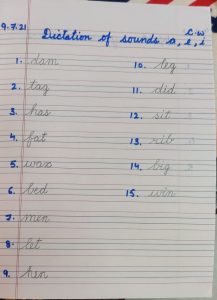 9.7.21
C.W
Dictation of sounds a, e, i
1. dam
2. tag
3. has
4. fat
5. wax
6. bed
7. men
8. let
9. hen
10. leg
11. did
12. sit
13. rib
14. big
15. win